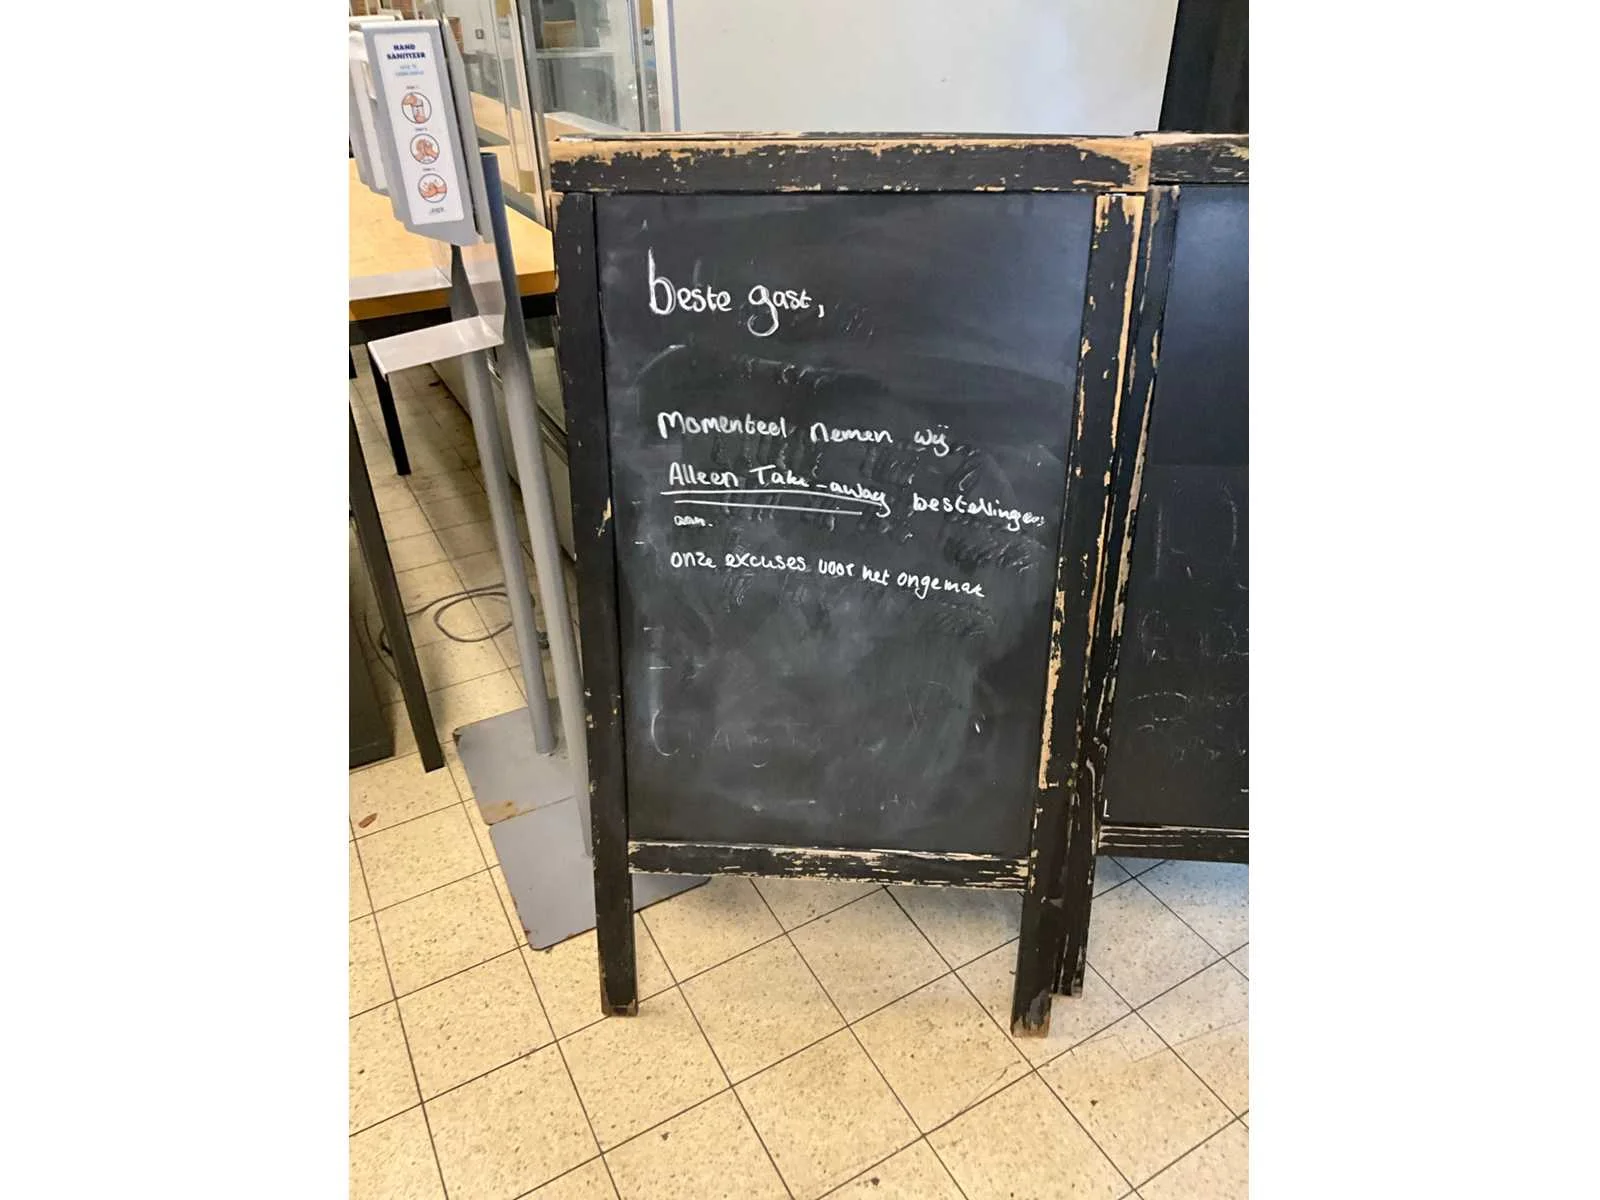 HAND
SANITIZER
beste gast,
Momenteel nemen wij
Alleen Take-away bestellingen
aan.
onze excuses voor het ongemak